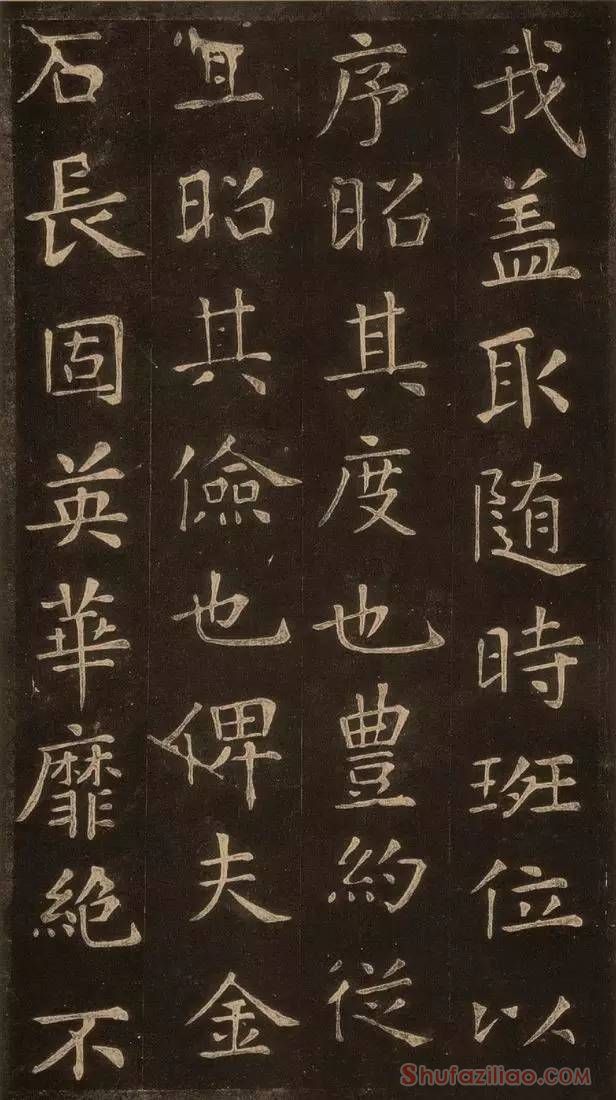 我盖取随時班位以
序昭其度也豊約從
宜昭其儉也俾夫金
石長固英華靡絶不
Shufaziliao.com